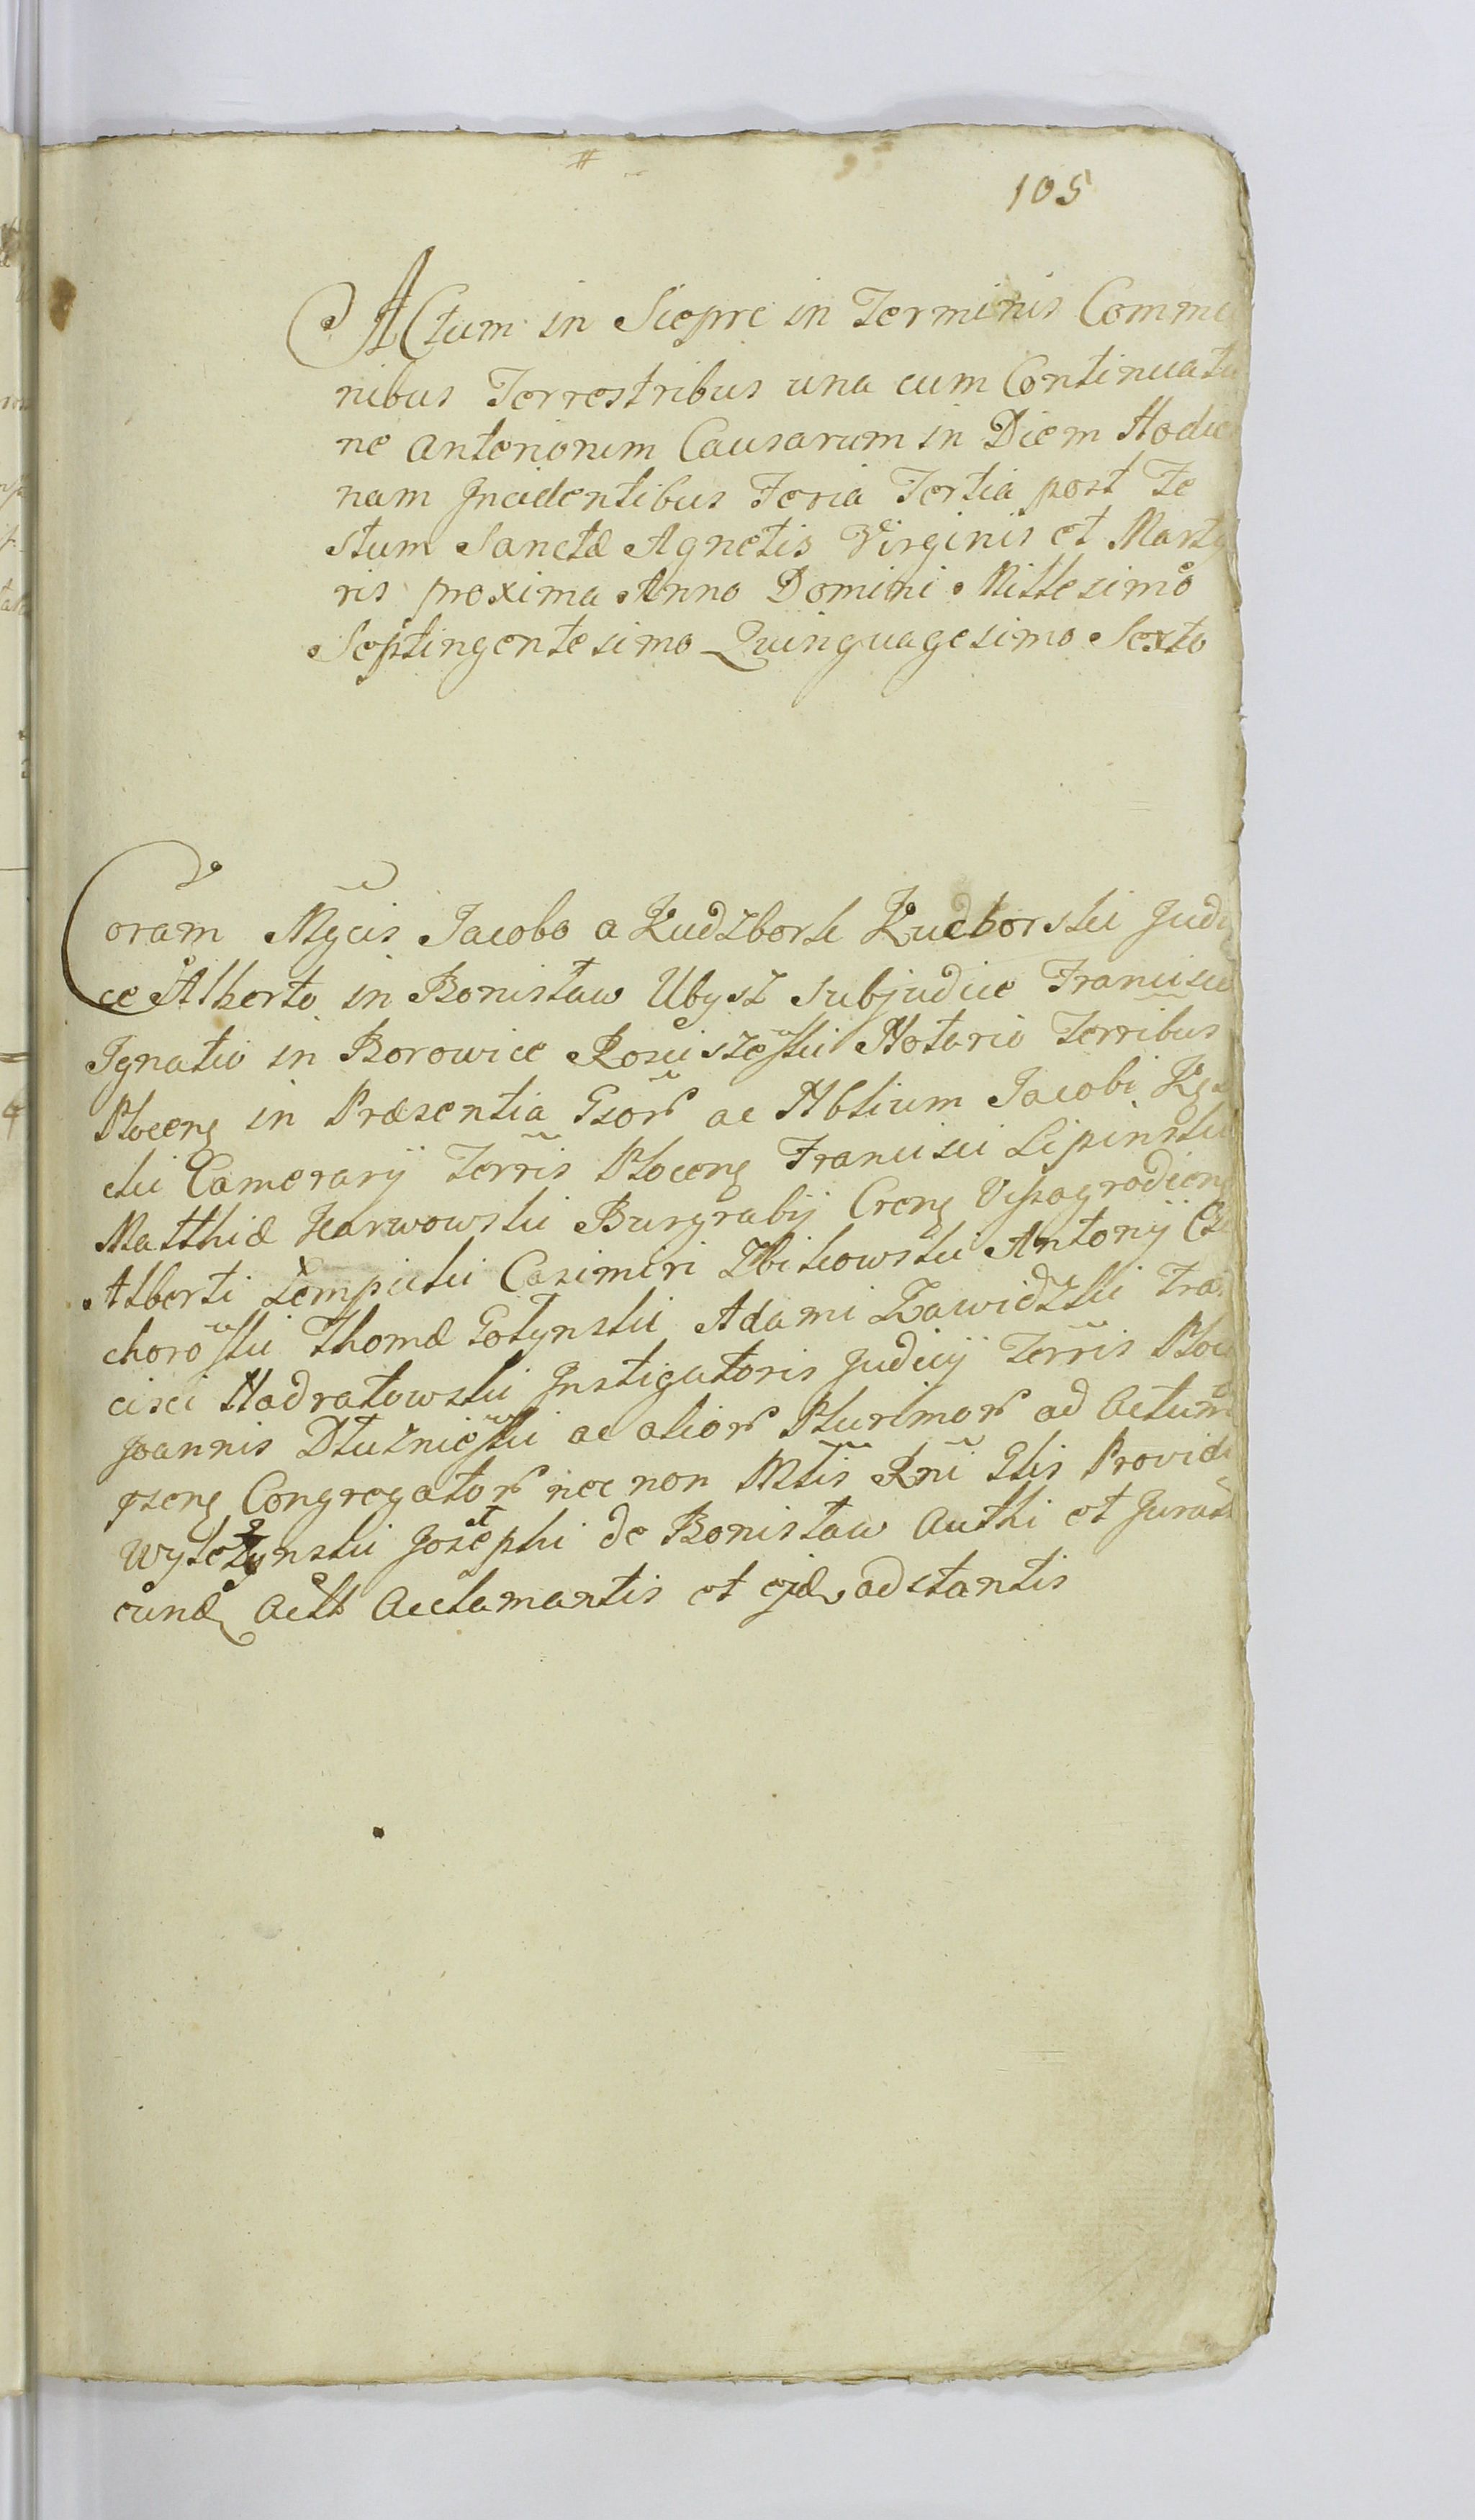 105
Actum in Siepre in Terminis Commu
nibus Terrestribus una cum Continuatio
ne anteriorum Causarum in Diem Hodier
nam Incidentibus Feria Tertia post Fe
stum Sanctæ Agnetis Virginis et Marty
ris proxima Anno Domini Millesimo
Septingentesimo Quinquagesimo Sexto
Coram Mgcis Jacobo a Kudzbork Kucborski Judi
ce Alberto in Bonisław Ubysz Subjudice Francisco
Ignatio in Borowice Rosciszewski Notario Terribus
Plocens in Præsentia Gsor ac Nblium Jacobi
cki Camerarij Terris Plocens Francisci Lipinski
Matthiæ Karwowski Burgrabij Crens Vissogrodiens
Alberti Łempicki Casimiri Zbikowski Antonij
chorowski Thomæ Gołynski Adami Zawidzki Fran
cisci Nadratowski Instigatoris Judicij Terris Ploce
Joannis Dłuzniewski ac alior Plurimor ad Actum
pzens Congregator nec non Mtis Rni Glis Providi
Wylezynski Josephi de Bonisław Authi et Jurati
eund Actt Acclamantis et ejd adstantis